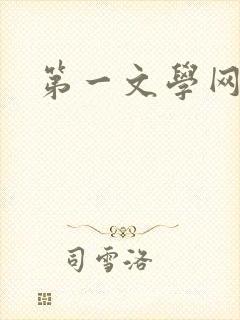 第一文學网
司雪洛